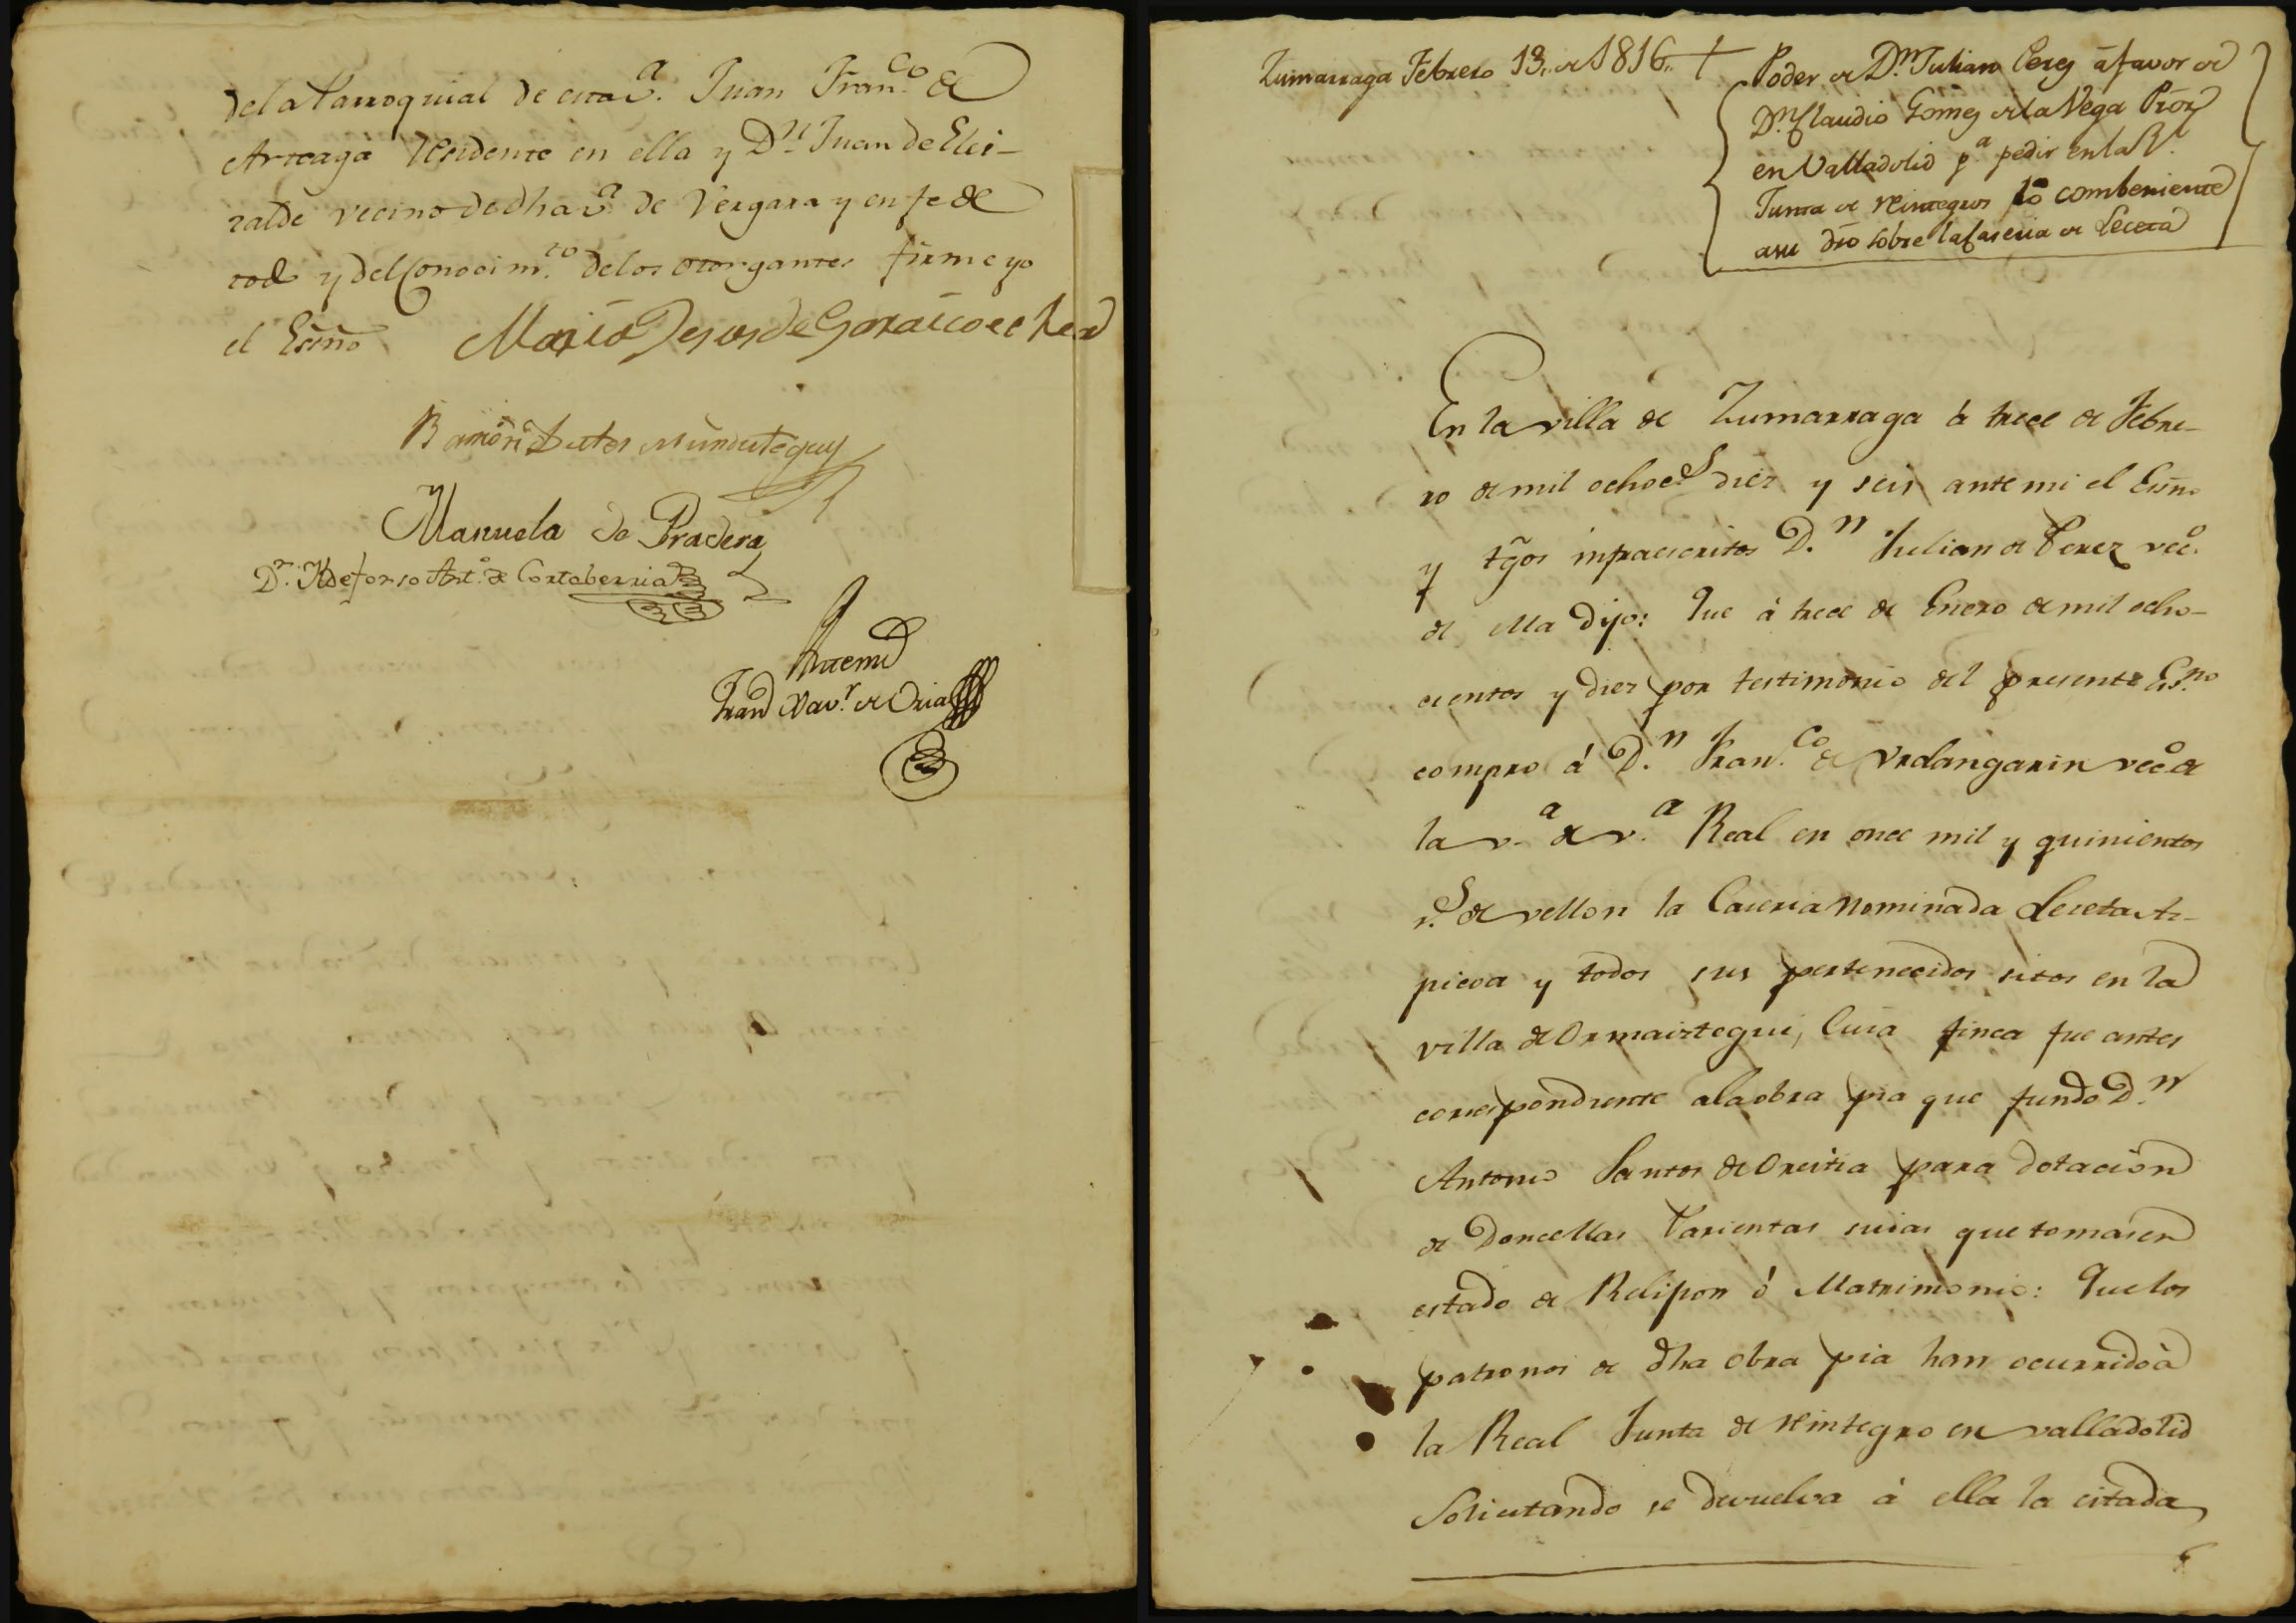 dela Parroquial de esta v.ª Juan Fran.co de
Arteaga residente en ella y D.n Juan de Elei-
zalde vecino de dha v.ª de Vergara y en fe de
todo y del Conocim.to de los otorgantes firme yo
el Esño
Maria Jesus de Goraicoechea
Ramon Munduteguy
Manuela de Pradera
D.n Yldefonso Ant.º de Cortaberria
Antemi
Fran.co Xav.r de Oria
Zumarraga Febrero 13,, de 1816,, †
Poder de D.n Julian Perez á favor de
D.n Claudio Gomez de la Vega Pror
en Valladolid p.ª pedir en la R.l
Junta de reintegros lo combeniente
a su dro sobre la Caseria de Leceta
En la villa de Zumarraga á trece de Febre-
ro de mil ochoc.s diez y seis ante mi el Esño
y tgos infraescritos D.n Julian de Perez vecº
de ella dijo: Que á trece de Enero de mil ocho-
cientos y diez por testimonio del presente Es.no
compro á D.n Fran.co de Urdangarin vecº de
la v.ª de v.ª Real en once mil y quinientos
r.s de vellon la Caseria nominada Leceta Az-
picoa y todos sus pertenecidos sitos en la
villa de Ormaiztegui, Cuia finca fue antes
correspondiente ala obra pia que fundo D.n
Antonio Santos de Oreitia para dotacion
de Doncellas Parientas suias que tomasen
estado de Relijion ó Matrimonio: Que los
patronos de dha obra pia han ocurrido à
la Real Junta de reintegro en valladolid
Solicitando se devuelva à ella la citada